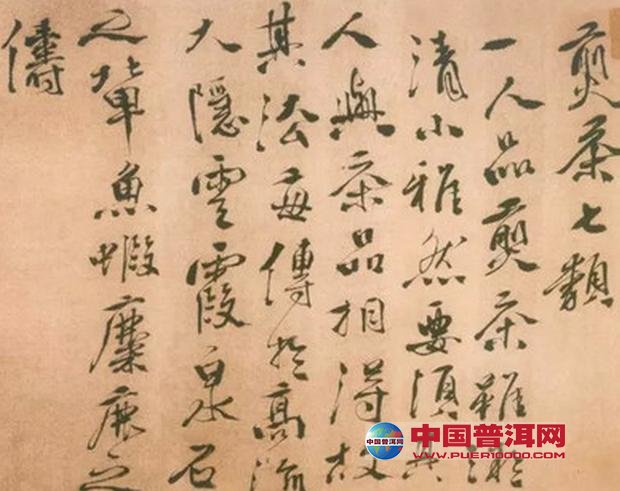 煎茶七類
一人品煎茶雖
清小雅然要須其
人與茶品相得故
其法每傳於高流
大隱雲霞泉石
之輩魚蝦麋鹿之
儔
中国普洱网
中国普洱网
WWW.PUER10000.COM